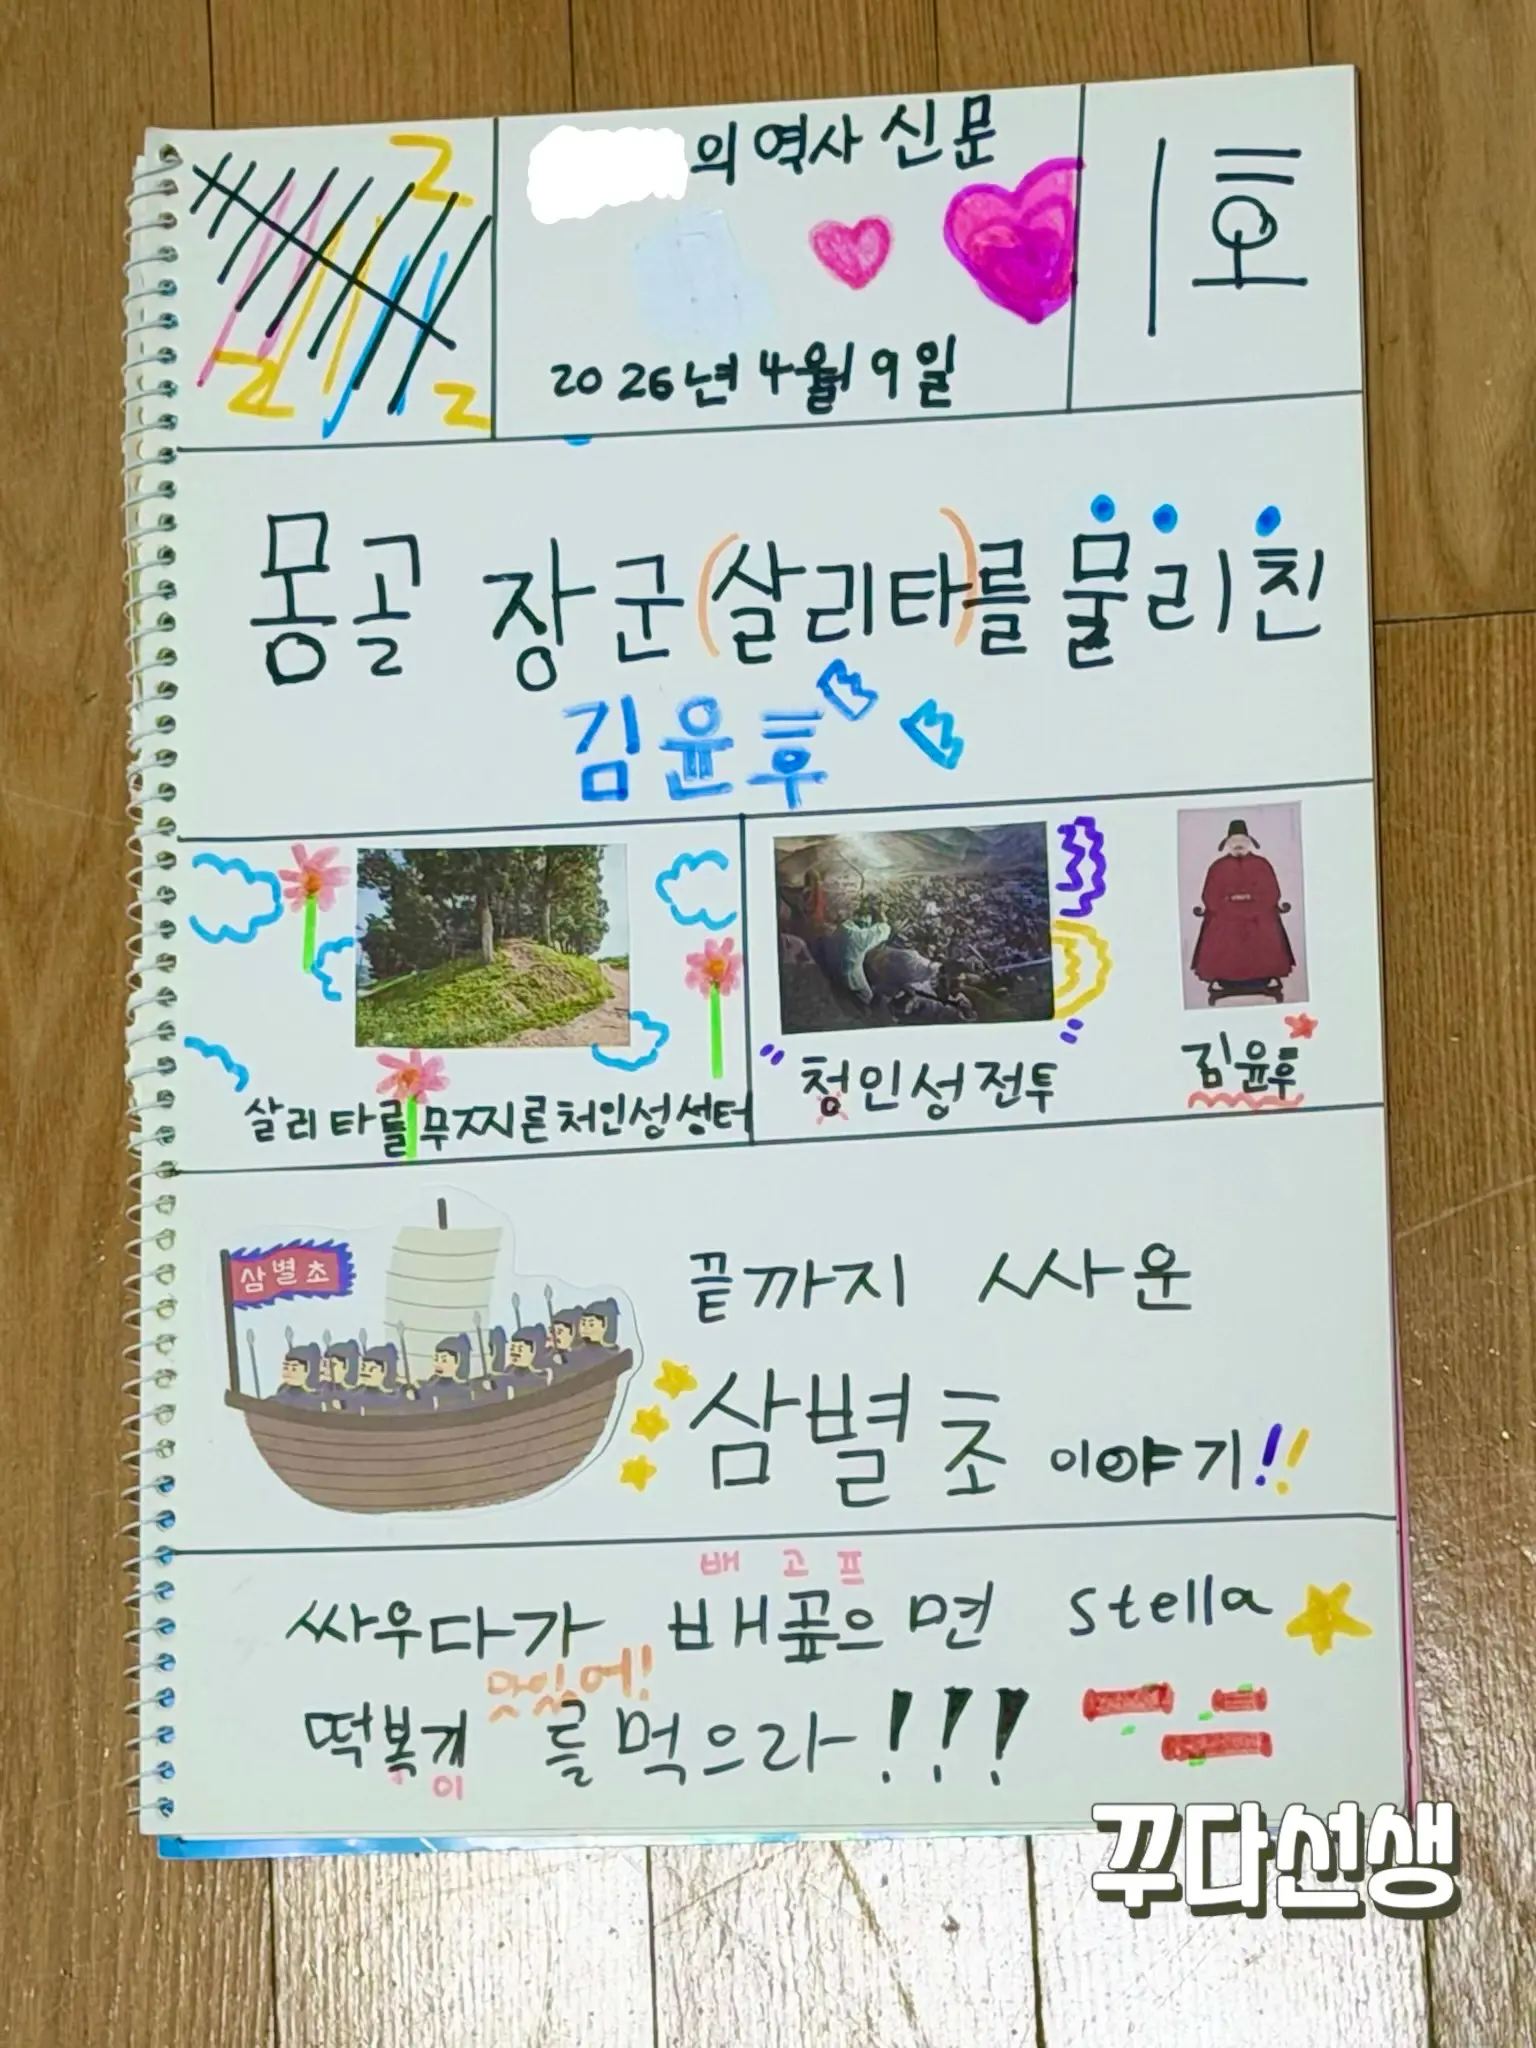 의 역사 신문
1호
2026년 4월 9일
몽골 장군 (살리타)를 물리친
김윤후
살리타를 무찌른 처인성 성터
"청인성전투"
김윤후
삼별초
끝까지 싸운
삼별초 이야기!!
배고프
싸우다가 배곺으면 stella
맛있어!
떡볶게를 먹으라!!!
이
꾸다선생